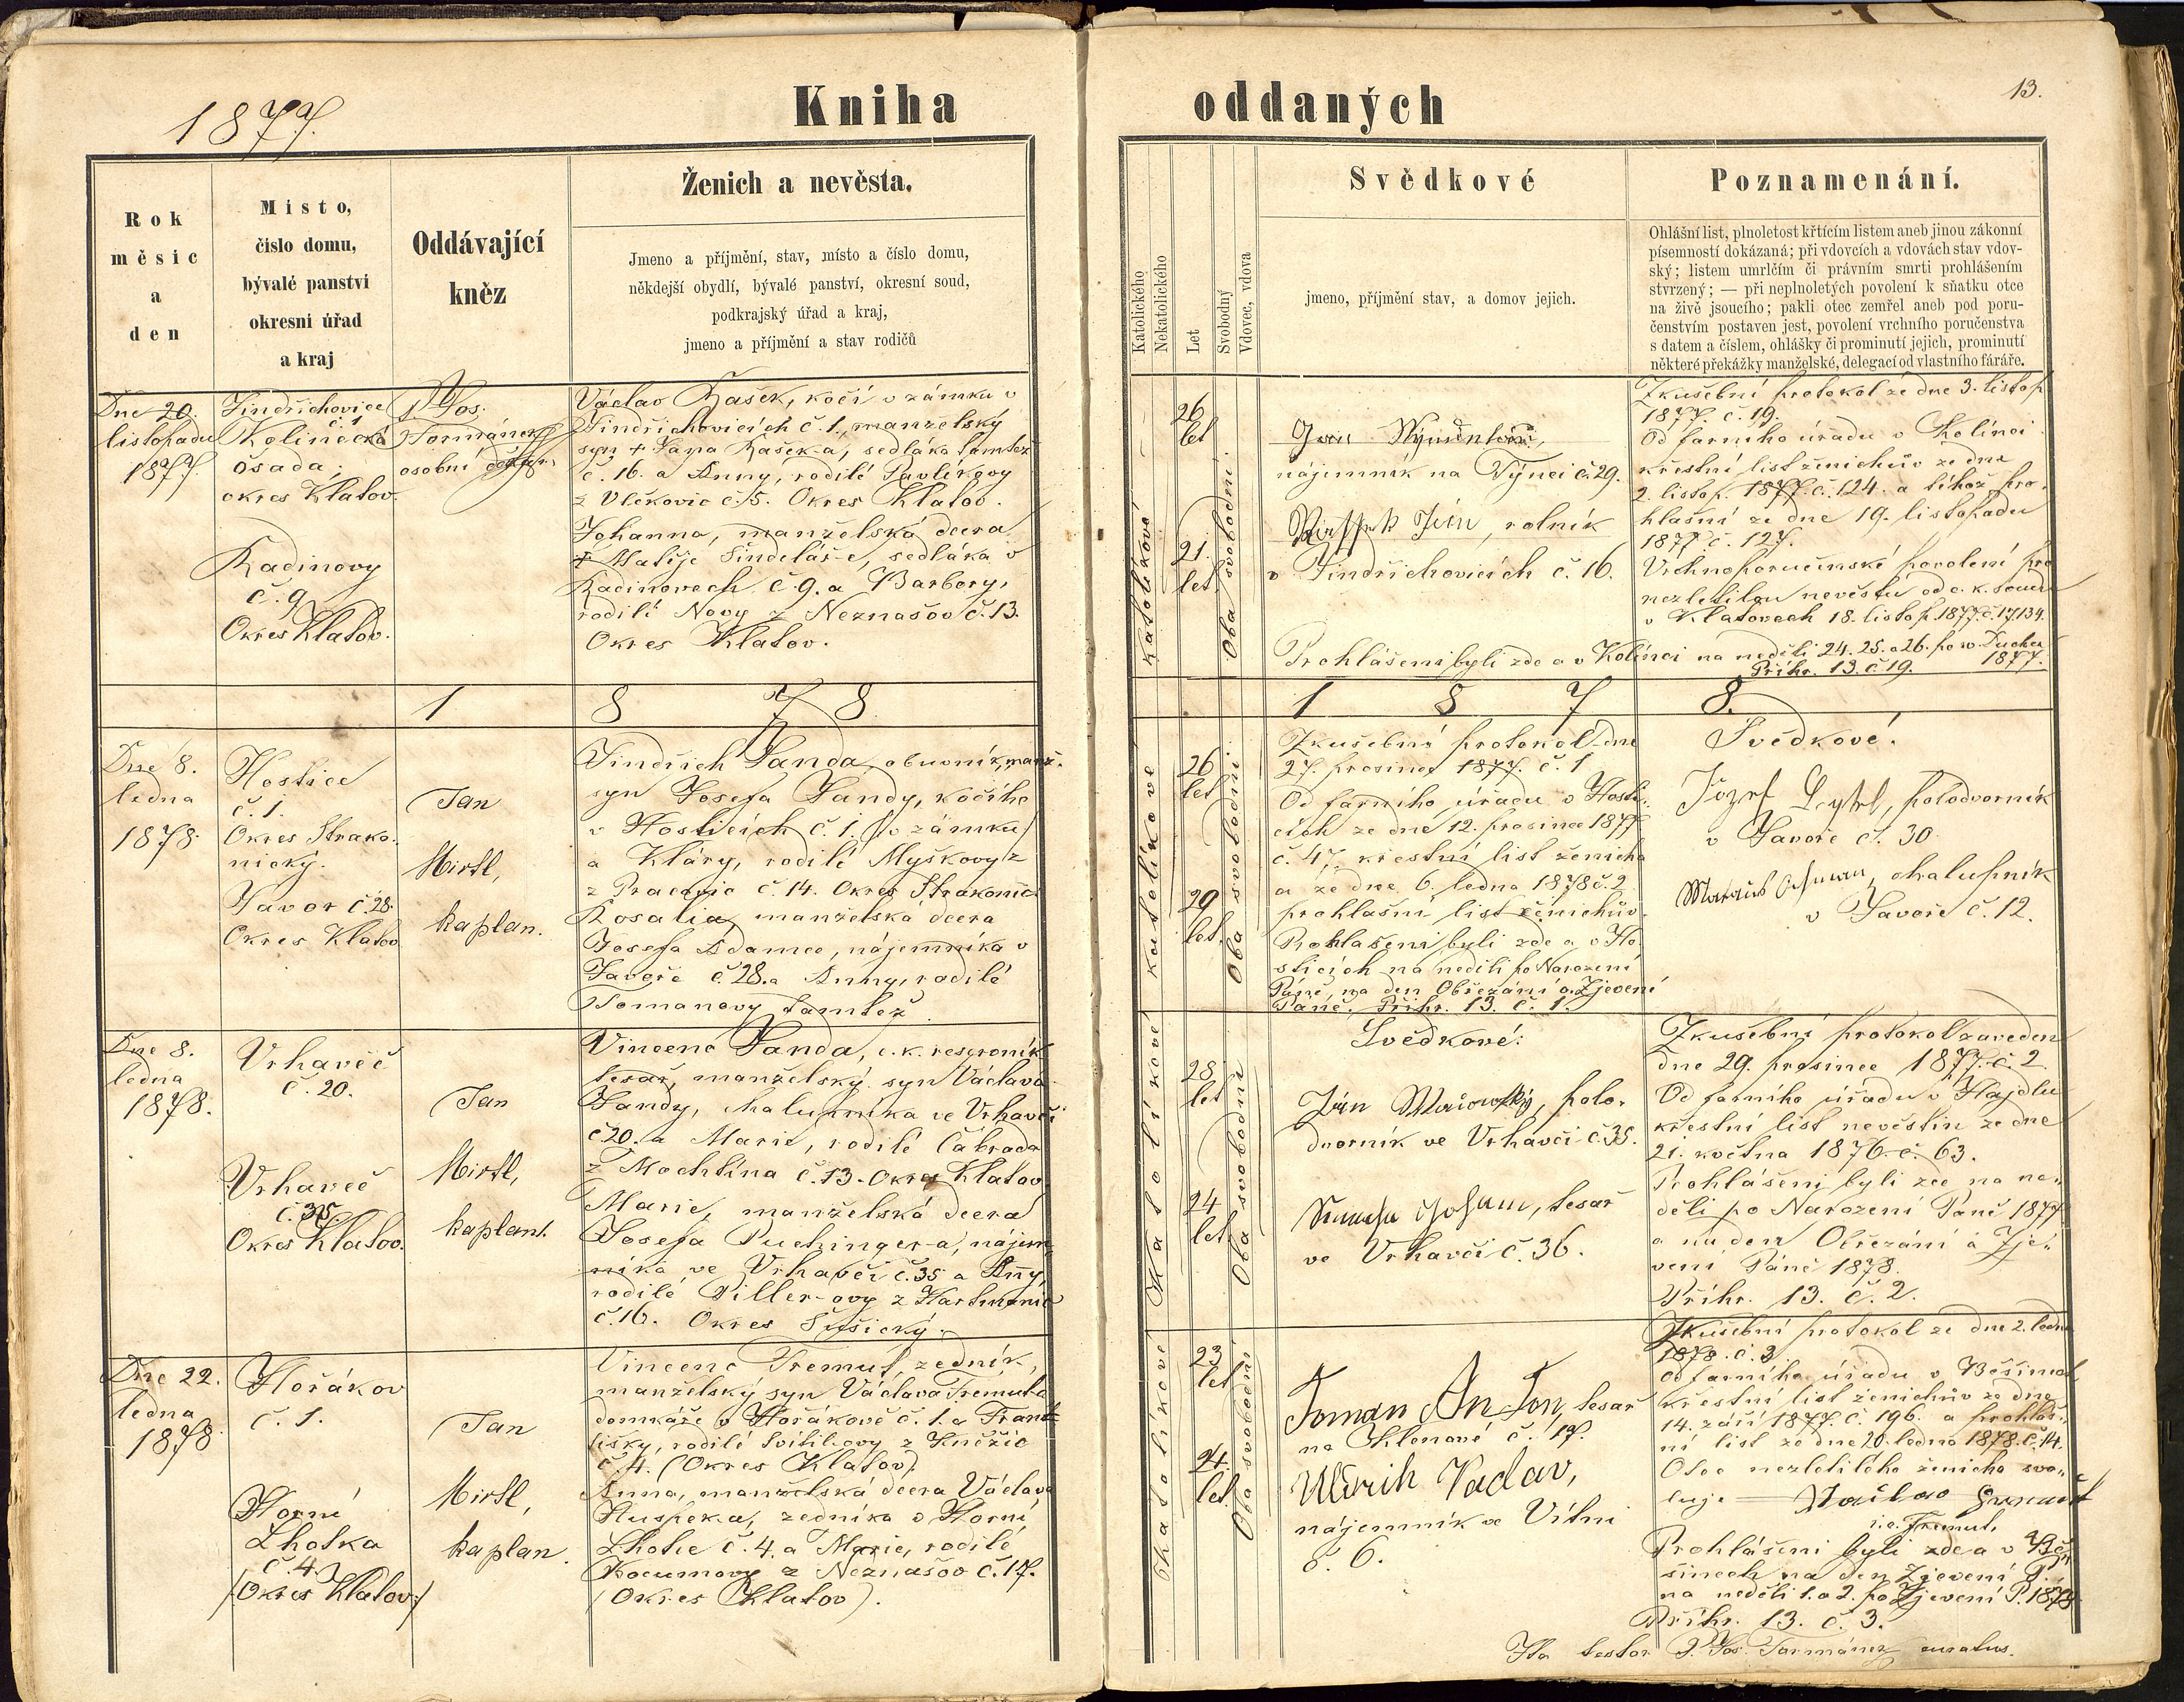 1877.
Kniha
Rok
měsíc
a
den
Místo,
číslo domu,
bývalé panství
okresní úřad
a kraj
Oddávající
kněz
Ženich a nevěsta.
Jmeno a příjmění, stav, místo a číslo domu,
někdejší obydlí, bývalé panství, okresní soud,
podkrajský úřad a kraj,
jmeno a příjmění a stav rodičů
Dne 20.
listopadu
1877.
Jindřichovice
č. 1
Kolinecká
osada;
okres Klatov.
Radinovy
č. 9
Okres Klatov.
P. Jos.
osobní
Václav Kašek, kočí v zámku v
Jindřichovicích č. 1., manželský
syn + Jana Kašek-a, sedláka tamtéž
č. 16. a Anny, rodilé Pavlíkovy
z Vlčkovic č. 5. Okres Klatov.
Johanna, manželská dcera
+ Matěje Šindeláře, sedláka v
Radinovech č. 9. a Barbory,
rodilé Novy z Neznašov č. 13.
Okres Klatov.
1 8 7 8
Dne 8.
ledna
1878.
Hostice
č. 1.
Okres Strako-
nický.
Javor č. 28.
Okres Klatov
Jan
Mirtl,
kaplan.
Jindřich Janda, obuvník, manž.
syn Josefa Jandy, kočího
v Hosticích č. 1. (v zámku)
a Kláry, rodilé Myškovy z
z Pracejovic č. 14. Okres Strakonic
Rosalia, manželská dcera
Josefa Adamce, nájemníka v
Javoře č. 28. a Anny, rodilé
Tomanovy tamtéž.
Dne 8.
ledna
1878.
Vrhavěč
č. 20.
Vrhavěč
č. 35.
Okres Klatov.
Jan
Mirtl,
kaplan.
Vincenc Janda, c. k. reservník
tesař, manželský syn Václava
Jandy, chalupníka ve Vrhavči
č 20. a Marie, rodilé Čabrada
z Mochtína č. 13. Okres Klatov.
Marie, manželská dcera
Josefa Puchinger-a, nájem-
níka ve Vrhavči č. 35 a Anny,
rodilé Piller-ovy z Hartmanic
č. 16. Okres Sušický.
Dne 22.
ledna
1878
Hořákov
č. 1.
Horní
Lhotka
č. 4.
(Okres Klatov)
Jan
Mirtl,
kaplan.
Vincenc Tremut, zedník,
manželský syn Václava Tremuta
domkáře v Hořákově č. 1. a Frant-
išky, rodilé Svihlovy z Kněžic
č. 4. (Okres Klatov).
Anna, manželská dcera Václava
Huspeka, zedníka v Horní
Lhotce č. 4. a Marie, rodilé
Kocumovy z Neznašov č. 17.
(Okres Klatov).
oddaných
13.
Katolického
Nekatolického
Let
Svobodný
Vdovec, vdova
Svědkové
jmeno, příjmění stav, a domov jejich.
Poznamenání.
Ohlášní list, plnoletost křtícím listem aneb jinou zákonní
písemností dokázaná; při vdovcích a vdovách stav vdov-
ský; listem umrlčím či právním smrti prohlášením
stvrzený; — při neplnoletých povolení k sňatku otce
na živě jsoucího; pakli otec zemřel aneb pod poru-
čenstvím postaven jest, povolení vrchního poručenstva
s datem a číslem, ohlášky či prominutí jejich, prominutí
některé překážky manželské, delegací od vlastního fáráře.
Katolíkové
26
let
21.
let
Oba svobodní.
Jan
nájemník na Týnci č. 29.
Jan, rolník
v Jindřichovicích č. 16.
Zkušební protokol ze dne 3. listop.
1877. č. 19.
Od farního úřadu v Kolínci
křestní list ženichův ze dne
2. listop. 1877. č. 124. a téhož pro-
hlašní ze dne 19. listopadu
1877 č. 127.
Vrchnoporučenské povolení pro
nezletilou nevěstu od c. k. soudu
v Klatovech 18. listop. 1877. č. 17134.
Prohlášeni byli zde a v Kolínci na neděli 24. 25. a 26. po sv. Duchu
1877.
Příhr. 13. č 19.
1 8 7 8.
Katolíkové
26
let
29
let.
Oba svobodní.
Zkušební protokol dne
27. prosince 1877. č. 1
Od farního úřadu v Hosti-
cích ze dne 12. prosince 1877
č. 47. křestní list ženicha
a ze dne 6. ledna 1878 č. 2
prohlašní list ženichův.
Prohlášeni byli zde a v Ho-
sticích na neděli po Narození
Páně, na den Obřezání a Zjevení
Páně. Příhr. 13. č. 1.
Svědkové:
Jozef, polodvorník
v Javoře č. 30.
chalupník
v Javoře č. 12.
Katolíkové
28
let
24
let.
Oba svobodní
Svědkové:
Jan, polo-
dvorník ve Vrhavči č. 35.
tesař
ve Vrhavči č. 36.
Zkušební protokol zaveden
dne 29. prosince 1877. č. 2.
Od farního úřadu v Hajdlu
křestní list nevěstin ze dne
21. května 1876. č. 63.
Prohlášeni byli zde na ne-
děli po Narození Páně 1877
a na den Obřezání a Zje-
vení Páně 1878.
Příhr. 13. č. 2.
Katolíkové
23
let
24.
let.
Oba svobodní
Toman Anton, tesař
na Klenové č. 17.
Ulrich Vaclav,
nájemník ve Vítni
č. 6.
Zkušební protokol ze dne 2. ledna
1878. č. 3
Od farního úřadu v Běšinech
křestní list ženichův ze dne
14. září 1877. č. 196. a prohláš-
ní list ze dne 20. ledna 1878. č. 14.
Otec nezletilého ženicha svo-
luje —
i. e. Tremut.
Prohlášeni byli zde a v Bě-
šinech na den Zjevení P.
na neděli 1. a 2. po Zjevení P. 1878
Příhr. 13. č. 3.
Ita testor P. Jos. curatus.